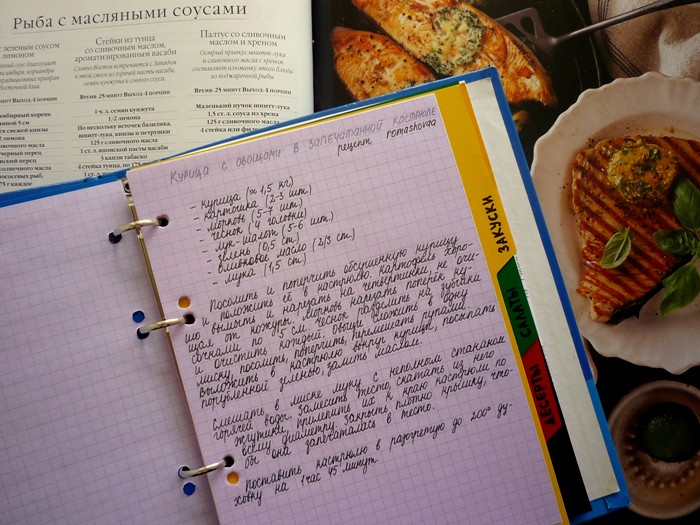 Рыба с масляными соусами
с зеленым соусом
лимоном
Стейки из тунца
со сливочным маслом,
ароматизированным васаби
Палтус со сливочным
маслом и хреном
Время 25 минут Выход 4 порции
Время 25 минут Выход 4 порции
1 ч. л. семян кунжута
1/2 лимона
По нескольку веточек базилика,
шнитт-лука, кинзы и петрушки
125 г сливочного масла
1 ст. л. японской пасты васаби
3 капли табаско
Маленький пучок шнитт-лука
1,5 ст. л. соуса из хрена
125 г сливочного масла
Курица с овощами в запечатанной кастрюле
рецепт romashovaa
- курица (≈ 1,5 кг)
- картошка (2-3 шт.)
- морковь (5-7 шт.)
- чеснок (4 головки)
- лук-шалот (5-6 шт.)
- зелень (0,5 ст.)
- оливковое масло (2/3 ст.)
- мука (1,5 ст.)
Посолить и поперчить обсушенную курицу
и положить её в кастрюлю. Картофель хоро-
шо вымыть и нарезать на четвертинки, не очи-
щая от кожуры. Морковь нарезать поперёк ку-
сочками по 1,5 см. Чеснок разделить на зубчики
и очистить каждый. Овощи сложить в одну
миску, посолить, поперчить, перемешать руками,
выложить в кастрюлю вокруг курицы, посыпать
порубленной зеленью, залить маслом.
Смешать в миске муку с неполным стаканом
горячей воды. Замесить тесто, скатать из него
жгутики, прилепить их к краю кастрюли по
всему диаметру. Закрыть плотно крышку, что-
бы она запечаталась в тесто.
Поставить кастрюлю в разогретую до 200° ду-
ховку на 1 час 45 минут
ЗАКУСКИ
САЛАТЫ
ДЕСЕРТЫ